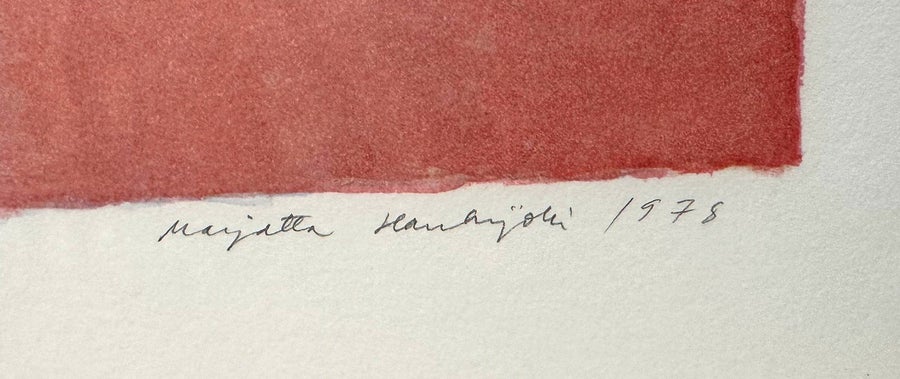 Marjatta Hanhijoki 1978